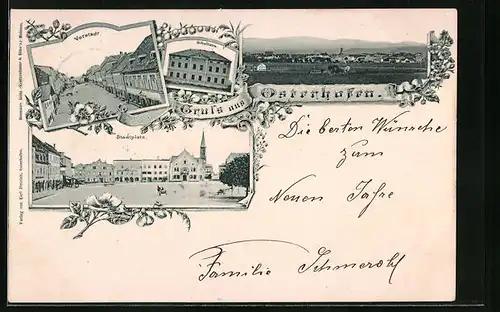 Vorstadt
Schulhaus
Gruss aus
Osterhofen.
Stadtplatz.
Die besten Wünsche
zum
Neuen Jahre
Familie
Verlag von Karl